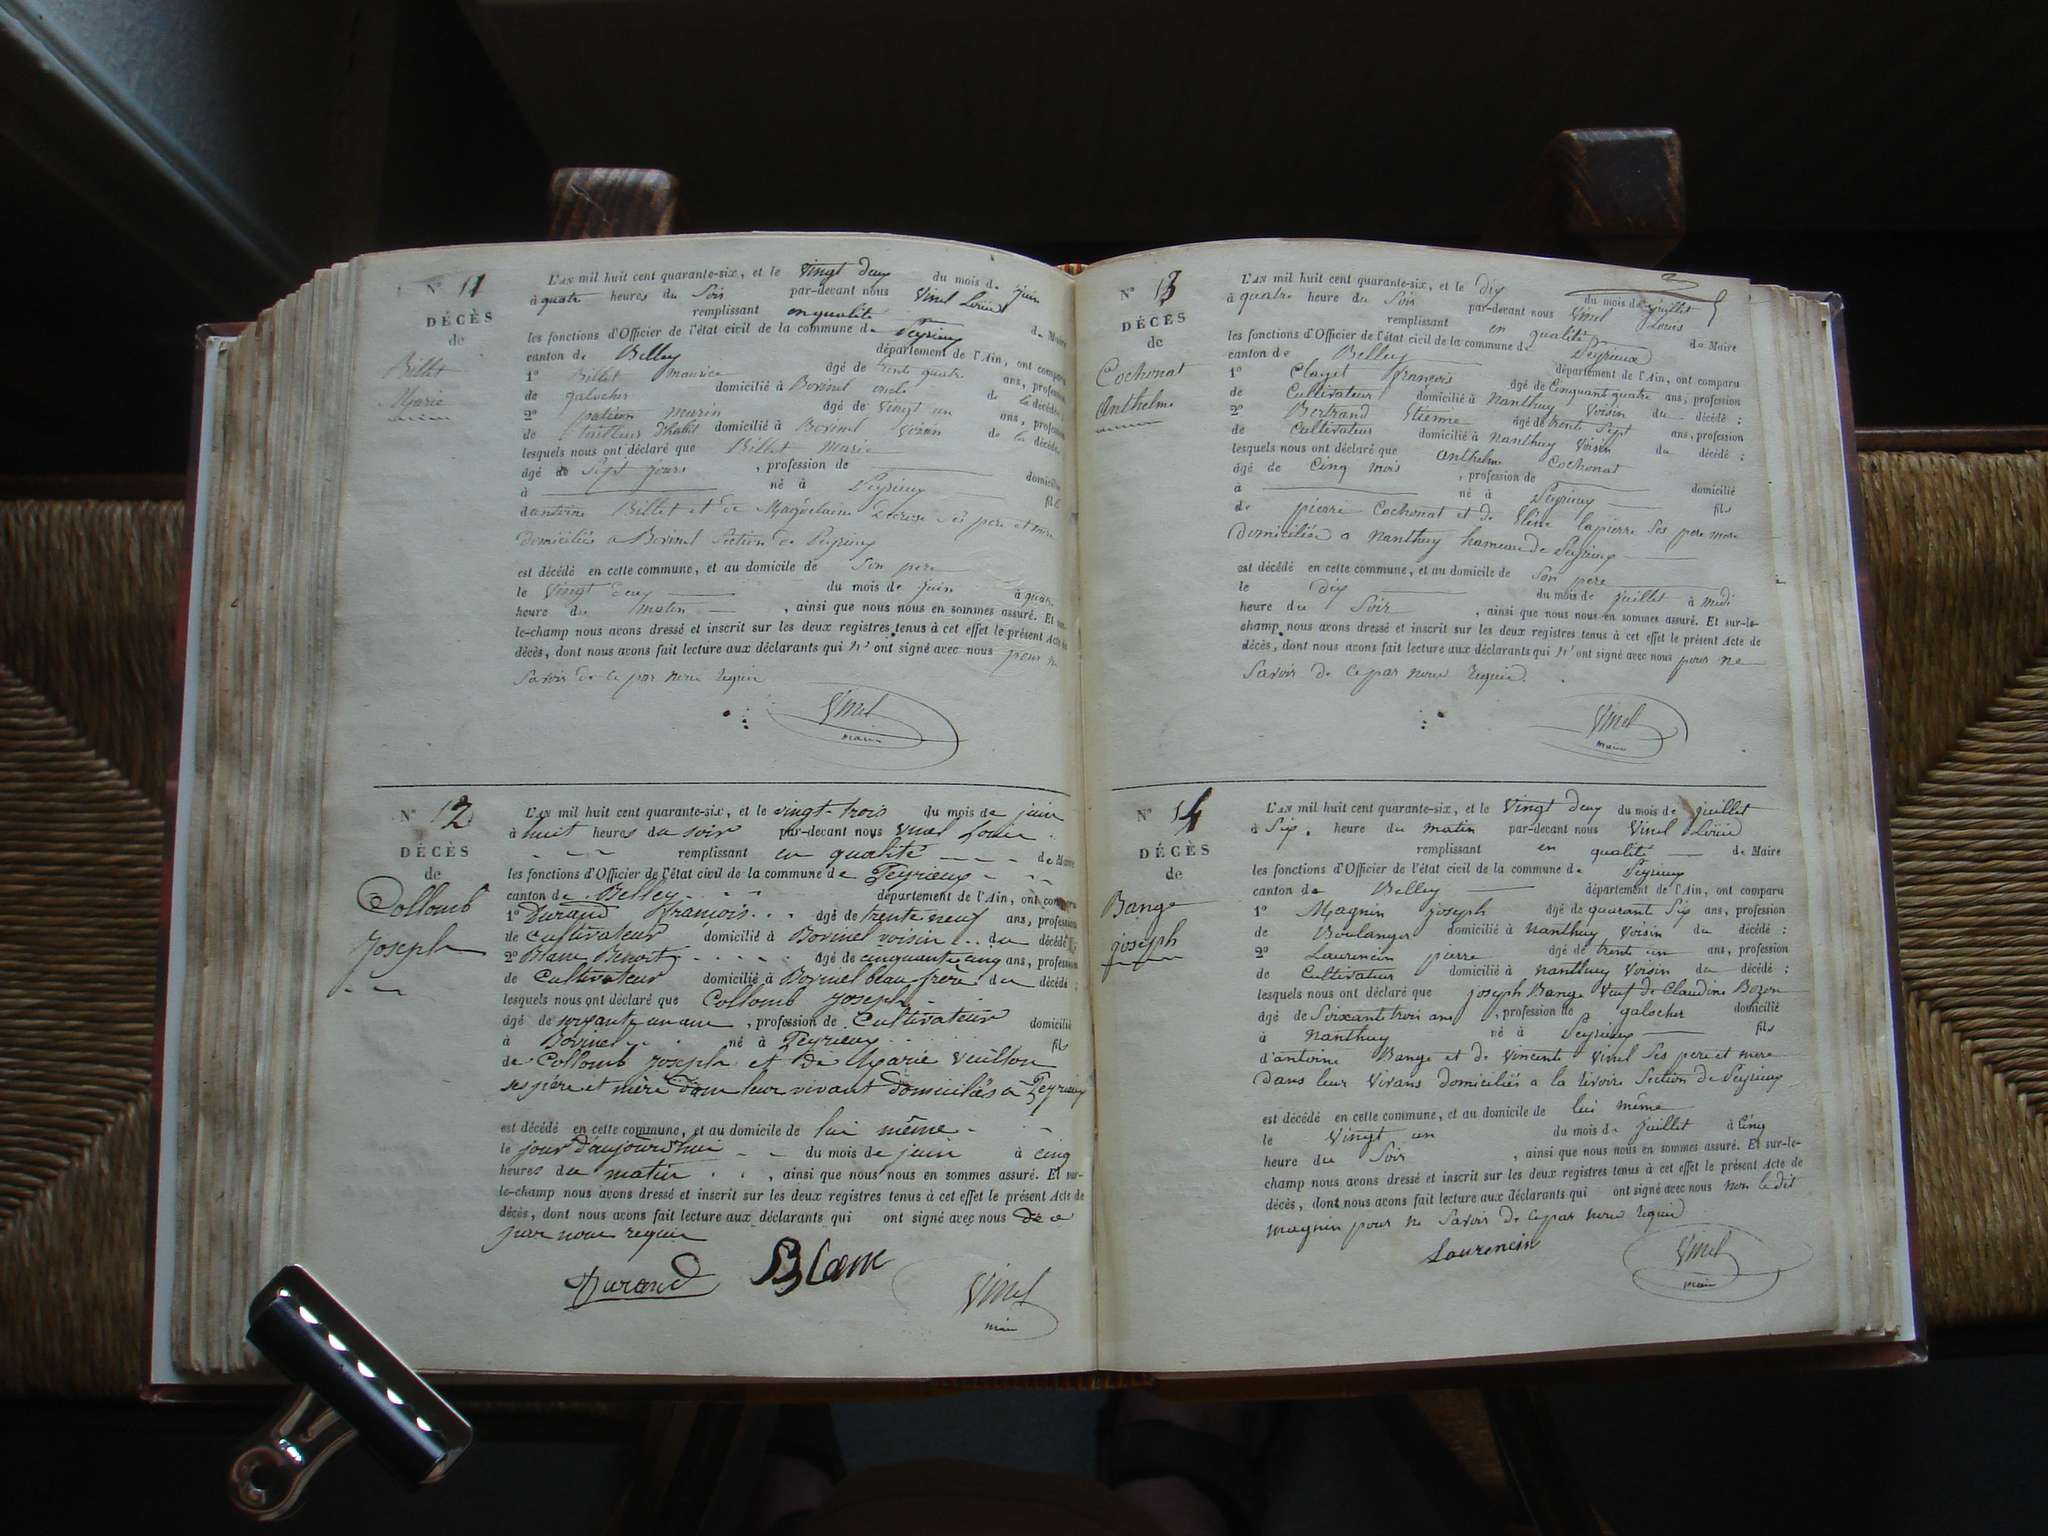 N° 11
DÉCÈS
de
Billet
Marie
L'AN mil huit cent quarante-six, et le vingt deux du mois de juin
à quatre heures du Soir par-devant nous Vinel Louis
remplissant en qualité de Maire
les fonctions d'Officier de l'état civil de la commune de Peyrieux
canton de Belley département de l'Ain, ont comparu
1° Billet maurice âgé de trente quatre ans, profession
de galocher domicilié à Bovinel oncle de la décédée
2° patron marin âgé de vingt un ans, profession
de tailleur d'habit domicilié à Bovinel voisin de la décédée
lesquels nous ont déclaré que Billet Marie
âgé de Sept jours , profession de domicilié
à né à Peyrieux fil
d'antoine Billet et de Magdelaine ses pere et mère
Domiciliés a Bovinel Section de Peyrieux
est décédé en cette commune, et au domicile de Son pere
le vingt deux du mois de juin à quatre
heure du matin , ainsi que nous nous en sommes assuré. Et sur-
le-champ nous avons dressé et inscrit sur les deux registres tenus à cet effet le présent Acte de
décès, dont nous avons fait lecture aux déclarants qui n' ont signé avec nous pour ne
Savoir de ce par nous requis
Vinel
maire
N° 12
DÉCÈS
de
Collomb
Joseph
L'AN mil huit cent quarante-six, et le vingt-trois du mois de juin
à huit heures du soir par-devant nous Vinel Louis
remplissant en qualité de Maire
les fonctions d'Officier de l'état civil de la commune de Peyrieux
canton de Belley département de l'Ain, ont comparu
1° Durand François âgé de trente neuf ans, profession
de Cultivateur domicilié à Bovinel voisin du décédé ;
2° Blanc Benoit âgé de cinquante cinq ans, profession
de Cultivateur domicilié à Bovinel beau frère du décédé ;
lesquels nous ont déclaré que Collomb Joseph
âgé de soixante un ans , profession de Cultivateur domicilié
à Bovinel né à Peyrieux fils
de Collomb Joseph et de Marie Vuillon
ses père et mère dans leur vivant domiciliés à Peyrieux
est décédé en cette commune, et au domicile de lui même
le jour d'aujourd'hui du mois de juin à cinq
heures du matin , ainsi que nous nous en sommes assuré. Et sur-
le-champ nous avons dressé et inscrit sur les deux registres tenus à cet effet le présent Acte de
décès, dont nous avons fait lecture aux déclarants qui ont signé avec nous de ce
par nous requis
Durand Blanc Vinel
maire
N° 13
DÉCÈS
de
Cochonat
Anthelme
L'AN mil huit cent quarante-six, et le dix du mois de juillet
à quatre heure du Soir par-devant nous Vinel Louis
remplissant en qualité de Maire
les fonctions d'Officier de l'état civil de la commune de Peyrieux
canton de Belley département de l'Ain, ont comparu
1° Clayet François âgé de Cinquant quatre ans, profession
de Cultivateur domicilié à Nanthuy Voisin du décédé ;
2° Bertrand Etienne âgé de trente Sept ans, profession
de Cultivateur domicilié à Nanthuy Voisin du décédé ;
lesquels nous ont déclaré que Anthelme Cochonat
âgé de Cinq mois , profession de domicilié
à né à Peyrieux fils
de pierre Cochonat et de lapierre Ses pere mere
Domiciliés a Nanthuy hameau de Peyrieux
est décédé en cette commune, et au domicile de Son pere
le dix du mois de juillet à midi
heure du Soir , ainsi que nous nous en sommes assuré. Et sur-le-
champ nous avons dressé et inscrit sur les deux registres tenus à cet effet le présent Acte de
décès, dont nous avons fait lecture aux déclarants qui n' ont signé avec nous pour ne
Savoir de ce par nous requis.
Vinel
maire
N° 14
DÉCÈS
de
Bange
joseph
L'AN mil huit cent quarante-six, et le Vingt deux du mois de juillet
à Six heure du matin par-devant nous Vinel Louis
remplissant en qualité de Maire
les fonctions d'Officier de l'état civil de la commune de Peyrieux
canton de Belley département de l'Ain, ont comparu
1° Magnin joseph âgé de quarante Six ans, profession
de Boulanger domicilié à Nanthuy Voisin du décédé ;
2° Laurencin pierre âgé de trente un ans, profession
de Cultivateur domicilié à Nanthuy Voisin du décédé ;
lesquels nous ont déclaré que joseph Bange Veuf de Claudine Bozon
âgé de Soixante trois ans , profession de galocher domicilié
à Nanthuy né à Peyrieux fils
d'antoine Bange et de Vincente Vinel Ses pere et mere
Dans leur Vivans domiciliés a la rivoire Section de Peyrieux
est décédé en cette commune, et au domicile de lui même
le Vingt un du mois de juillet à Cinq
heure du Soir , ainsi que nous nous en sommes assuré. Et sur-le-
champ nous avons dressé et inscrit sur les deux registres tenus à cet effet le présent Acte de
décès, dont nous avons fait lecture aux déclarants qui ont signé avec nous non ledit
magnin pour ne Savoir de ce par nous requis
Laurencin Vinel
maire